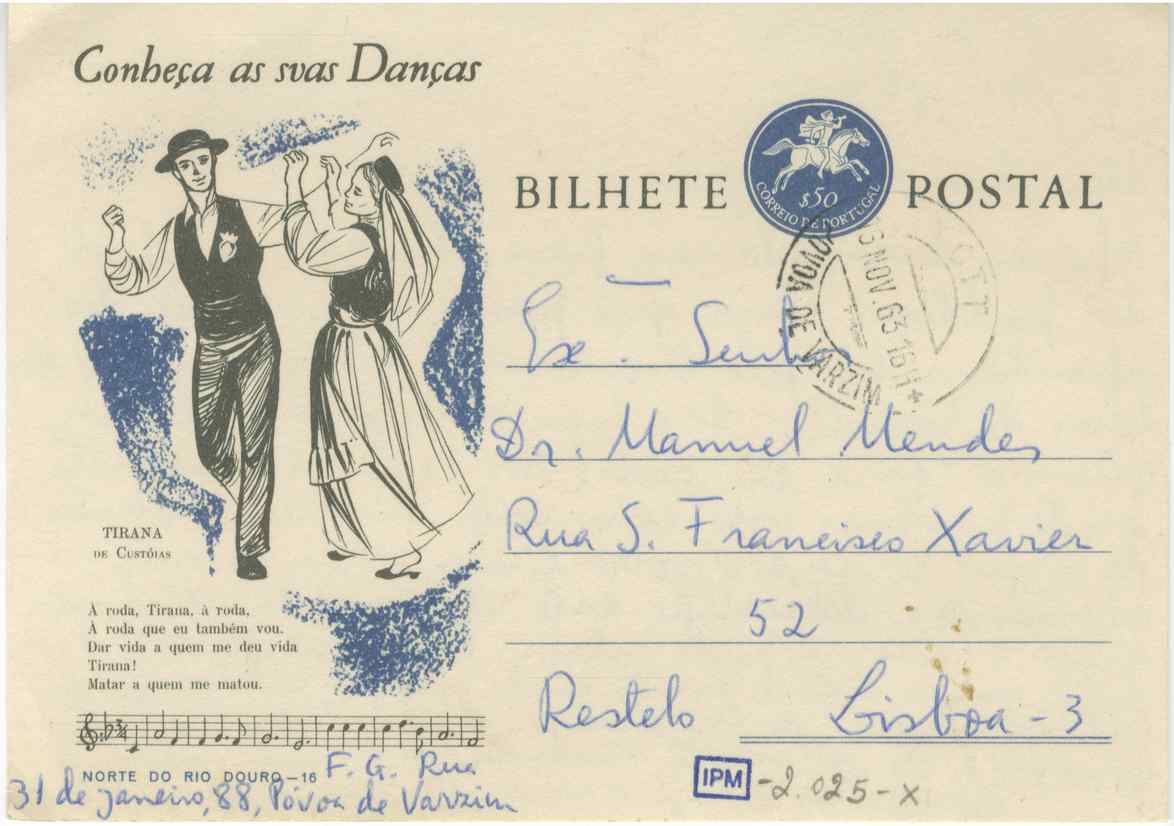 Conheça as svas Danças
BILHETE POSTAL
$50
CORREIO DE PORTUGAL
CTT
NOV.63 16H
PÓVOA DE VARZIM *
Ex. Senhor
Dr. Manuel Mendes
Rua S. Francisco Xavier
52
Restelo Lisboa - 3
TIRANA
DE CUSTÓIAS
À roda, Tirana, à roda,
À roda que eu também vou.
Dar vida a quem me deu vida
Tirana!
Matar a quem me matou.
NORTE DO RIO DOURO - 16
F. G. Rua
31 de janeiro, 88, Póvoa de Varzim
IPM - 2.025 - X